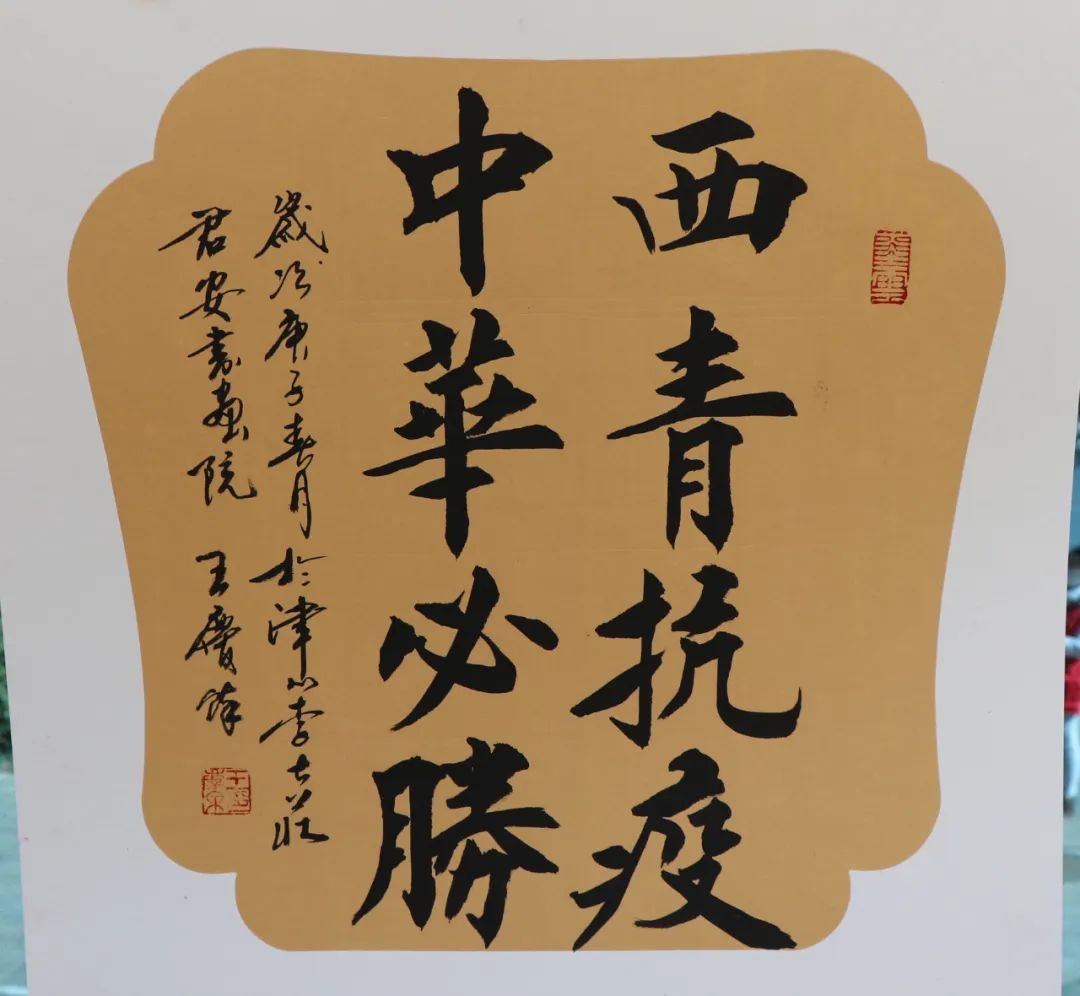 西青抗疫
中華必勝
歲次庚子春月於津小李大莊
君安書畫院 王慶